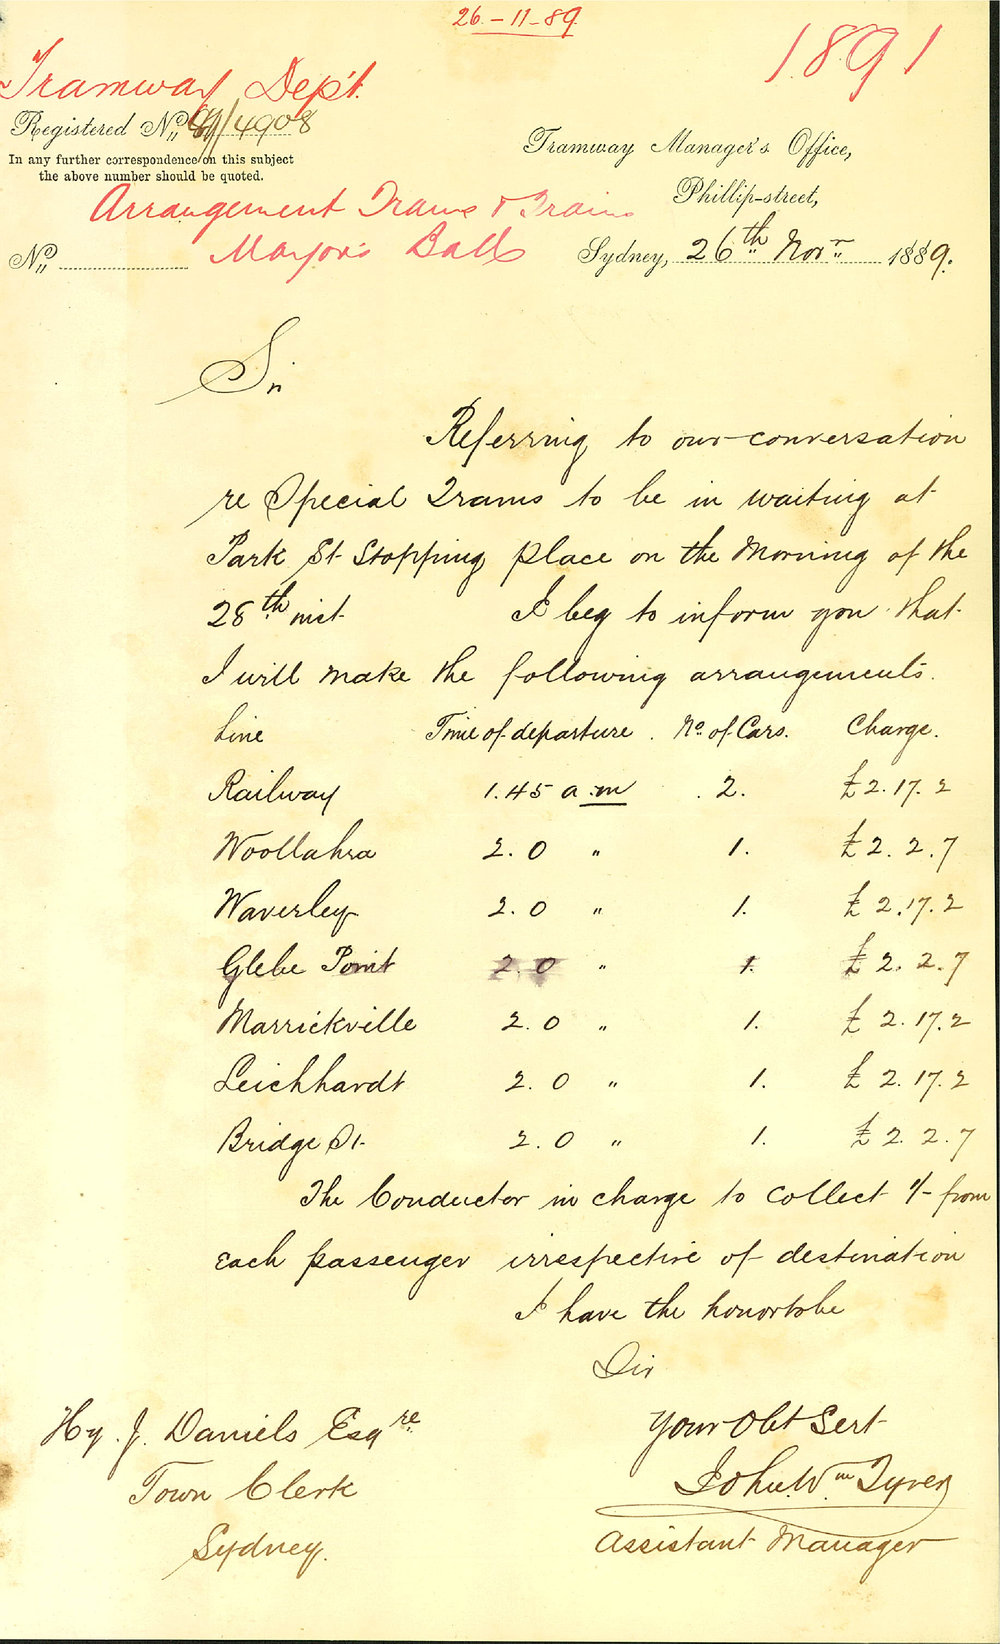 26-11-89
1891
Tramway Dept.
Registered No. 89/4908
In any further correspondence on this subject
the above number should be quoted.
Tramway Manager's Office,
Phillip-street,
Arrangement Trams & Trains
No. Mayor's Ball
Sydney, 26th Novr 1889.
Sir
Referring to our conversation
re Special Trams to be in waiting at
Park St Stopping place on the Morning of the
28th inst I beg to inform you that
I will make the following arrangements.
Line Time of departure. No. of Cars. Charge.
Railway 1.45 a.m 2. £2.17.2
Woollahra 2.0 " 1. £2.2.7
Waverley 2.0 " 1. £2.17.2
Glebe Point 2.0 " 1. £2.2.7
Marrickville 2.0 " 1. £2.17.2
Leichhardt 2.0 " 1. £2.17.2
Bridge St. 2.0 " 1. £2.2.7
The Conductor in charge to collect 1/- from
each passenger irrespective of destination
I have the honor to be
Sir
Your Obt Sert
Hy. J. Daniels Esqre
Town Clerk
Sydney.
John Wm
Assistant Manager